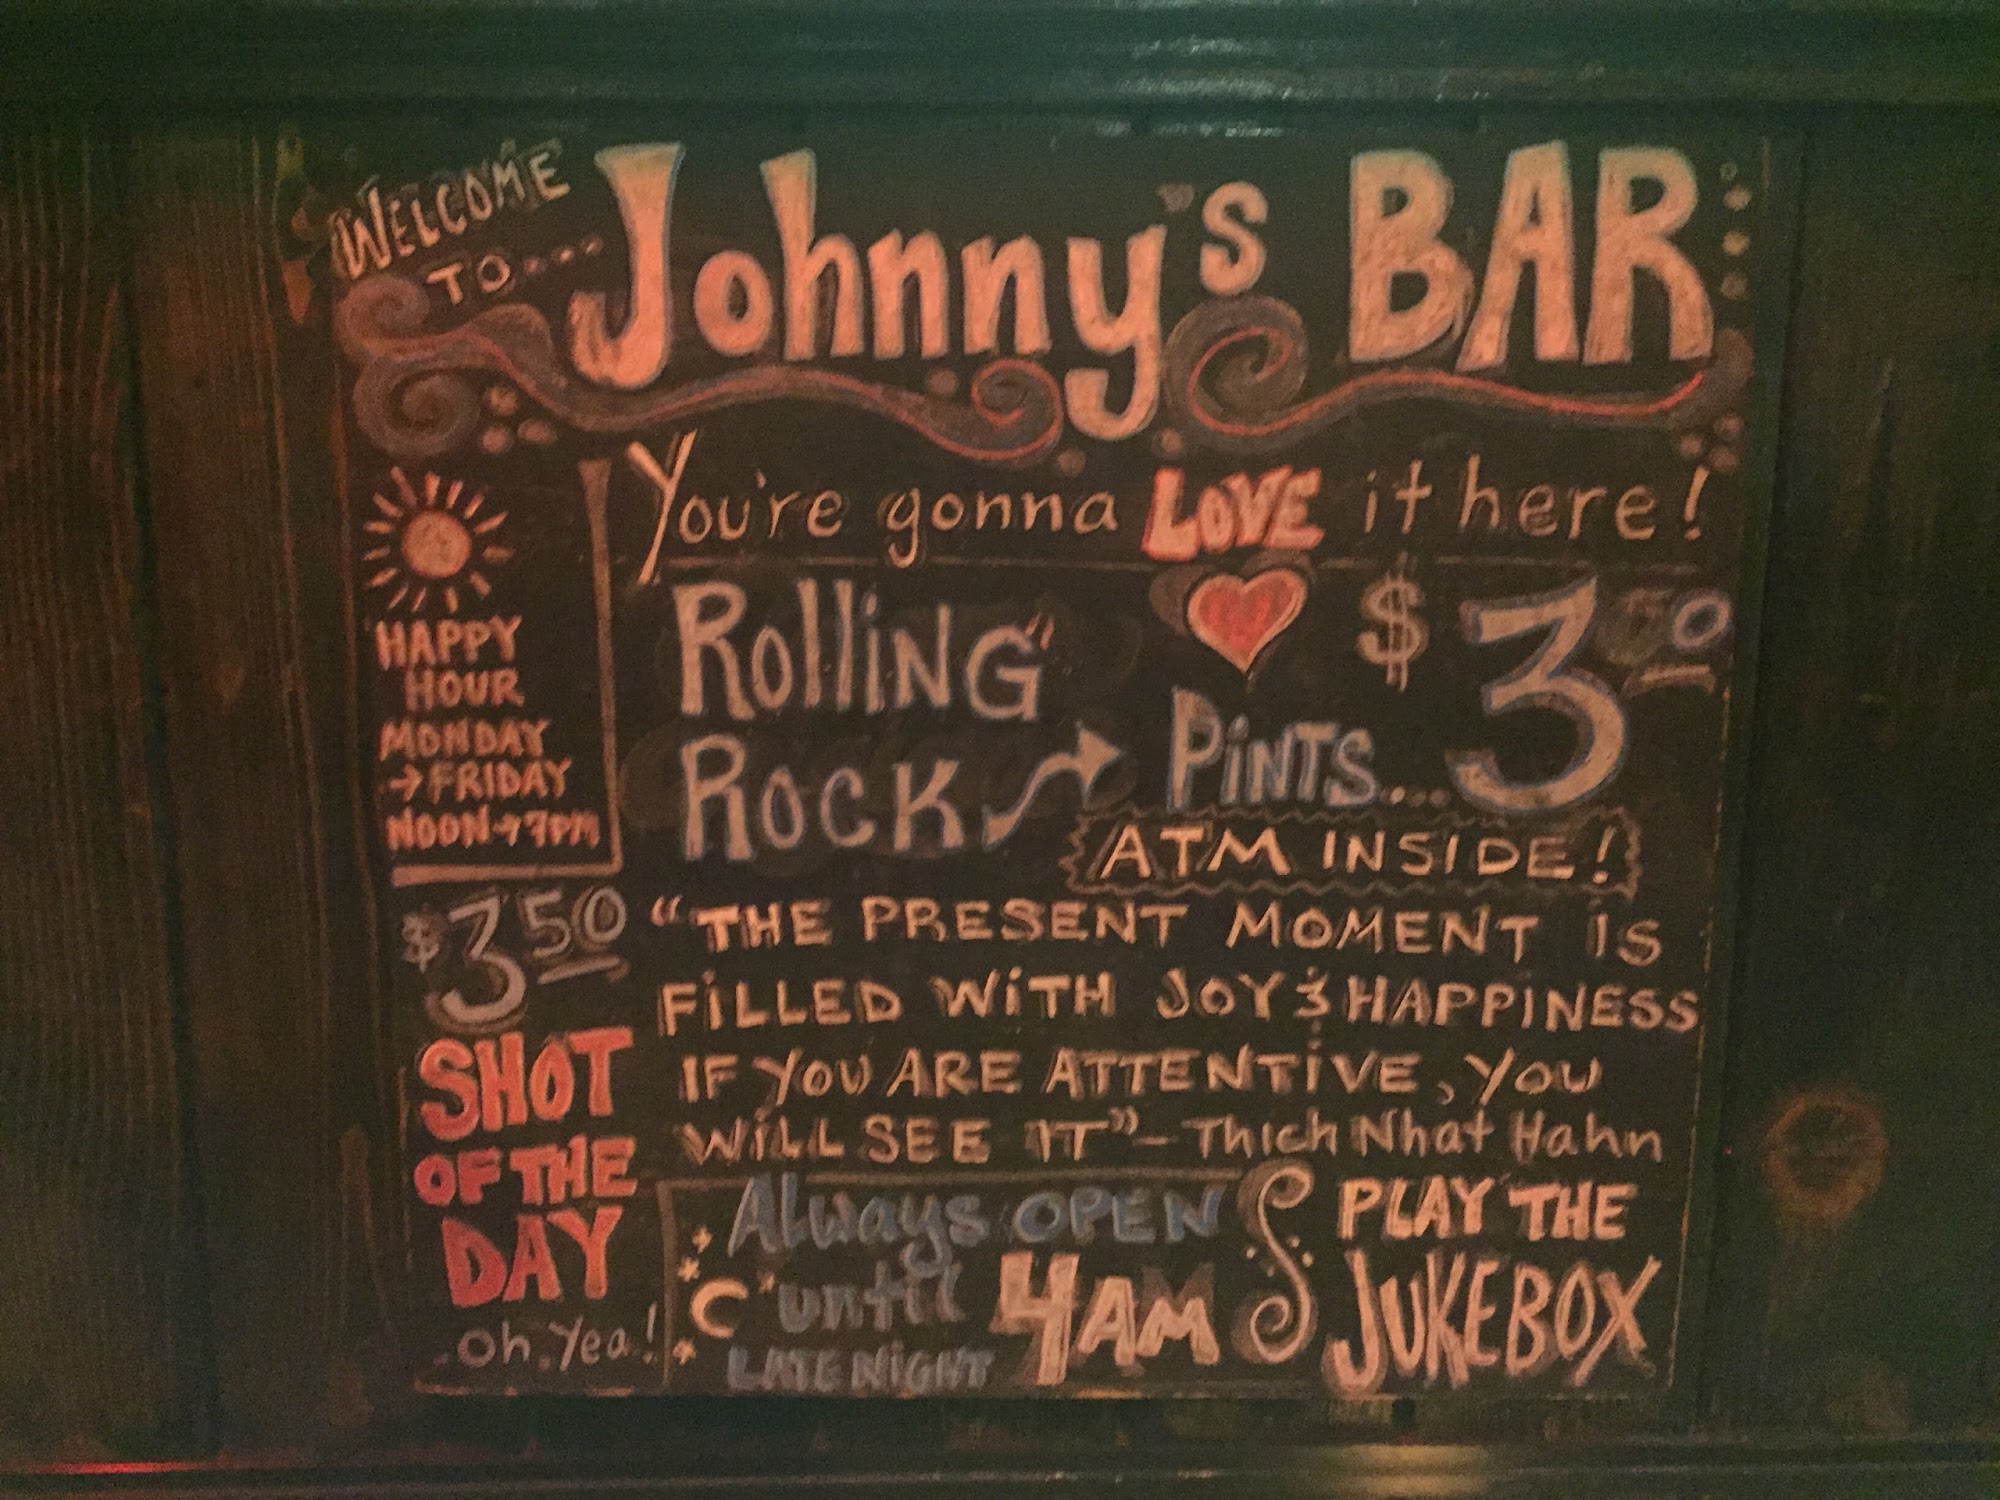 WELCOME
TO....
Johnny's BAR
You're gonna LOVE it here!
HAPPY
HOUR
MONDAY
→ FRIDAY
NOON → 7PM
ROLLiNG
ROCK → PiNTS.... $3
ATM INSIDE!
$3.50
SHOT
OF THE
DAY
oh, yea!
"THE PRESENT MOMENT iS
FiLLED WiTH JOY & HAPPiNESS
IF YOU ARE ATTENTiVE, YOU
WiLL SEE IT" - Thich Nhat Hahn
Always OPEN
until 4AM
LATE NIGHT
PLAY THE
JUKEBOX